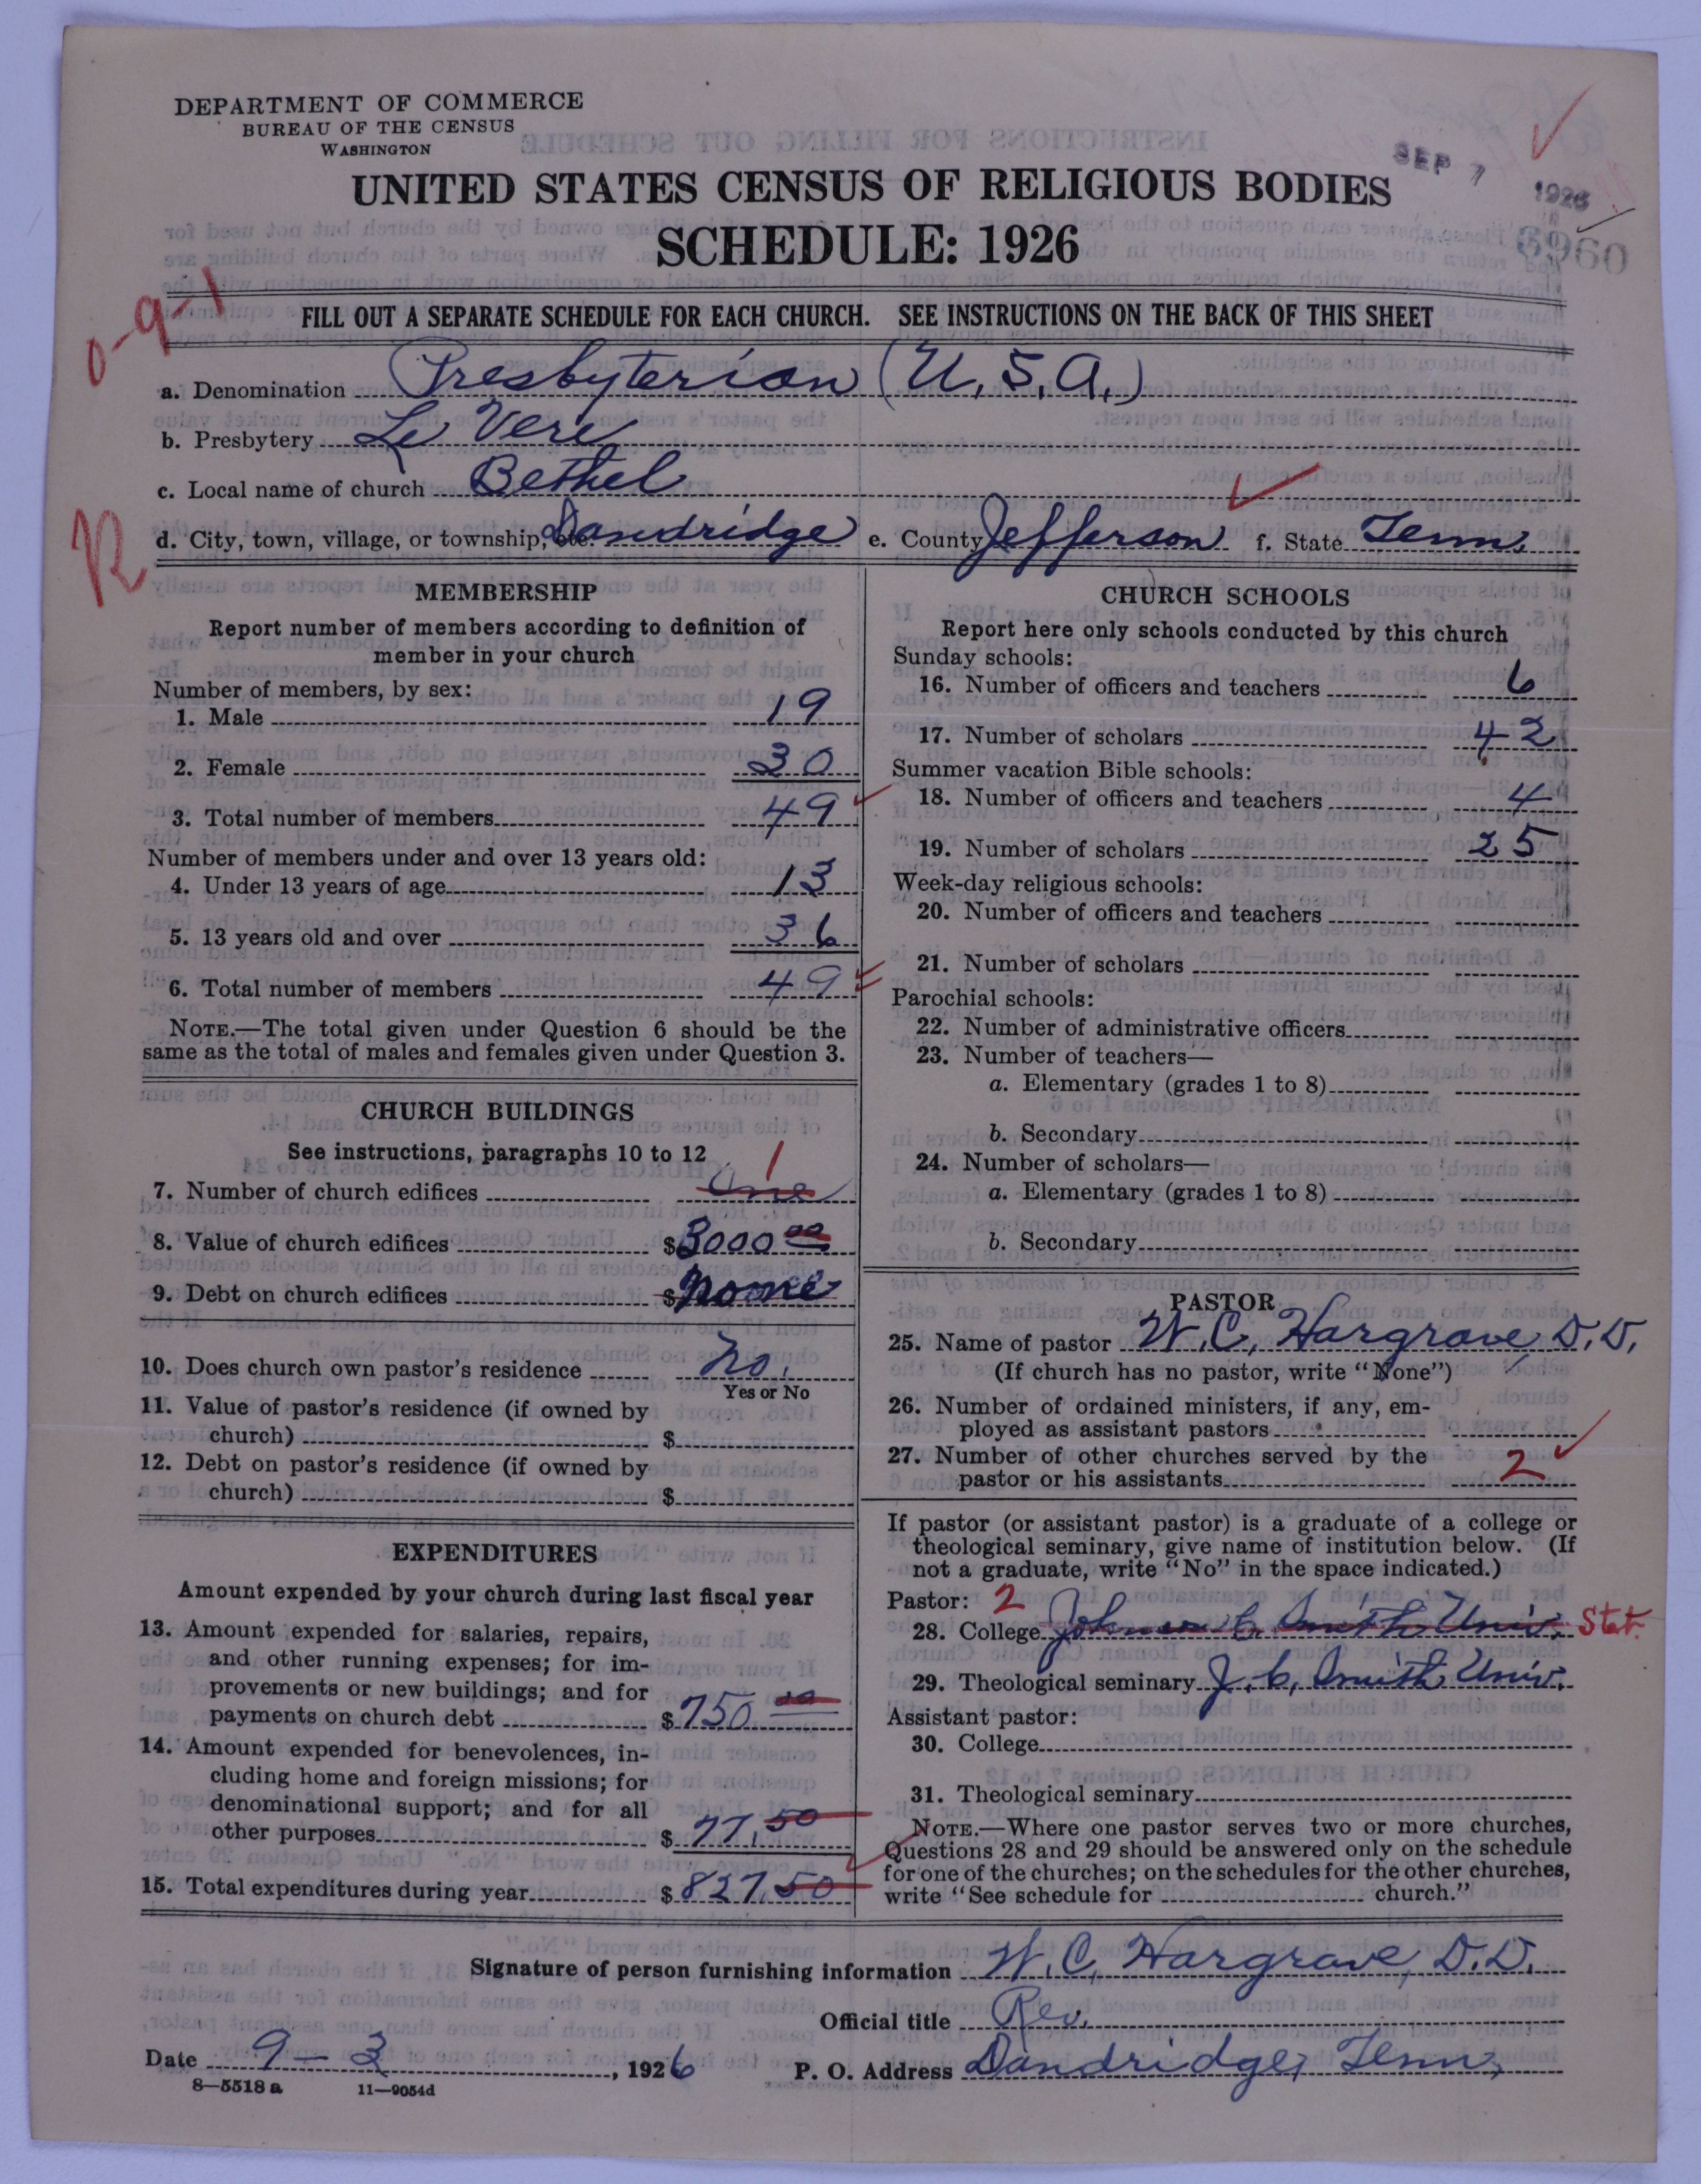 DEPARTMENT OF COMMERCE
BUREAU OF THE CENSUS
WASHINGTON
SEP 7 1926
UNITED STATES CENSUS OF RELIGIOUS BODIES
SCHEDULE: 1926
6960
0-9-1
FILL OUT A SEPARATE SCHEDULE FOR EACH CHURCH. SEE INSTRUCTIONS ON THE BACK OF THIS SHEET
a. Denomination Presbyterian (U.S.A.)
b. Presbytery Le Vere
c. Local name of church Bethel
R
d. City, town, village, or township, etc. Dandridge e. County Jefferson f. State Tenn.
MEMBERSHIP
Report number of members according to definition of
member in your church
Number of members, by sex:
1. Male 19
2. Female 30
3. Total number of members 49
Number of members under and over 13 years old:
4. Under 13 years of age 13
5. 13 years old and over 36
6. Total number of members 49
NOTE.—The total given under Question 6 should be the
same as the total of males and females given under Question 3.
CHURCH BUILDINGS
See instructions, paragraphs 10 to 12
1
7. Number of church edifices One
8. Value of church edifices $3000 00
9. Debt on church edifices $None
10. Does church own pastor's residence No.
Yes or No
11. Value of pastor's residence (if owned by
church) $
12. Debt on pastor's residence (if owned by
church) $
EXPENDITURES
Amount expended by your church during last fiscal year
13. Amount expended for salaries, repairs,
and other running expenses; for im-
provements or new buildings; and for
payments on church debt $750 00
14. Amount expended for benevolences, in-
cluding home and foreign missions; for
denominational support; and for all
other purposes $77.50
15. Total expenditures during year $827.50
CHURCH SCHOOLS
Report here only schools conducted by this church
Sunday schools:
16. Number of officers and teachers 6
17. Number of scholars 42
Summer vacation Bible schools:
18. Number of officers and teachers 4
19. Number of scholars 25
Week-day religious schools:
20. Number of officers and teachers
21. Number of scholars
Parochial schools:
22. Number of administrative officers
23. Number of teachers—
a. Elementary (grades 1 to 8)
b. Secondary
24. Number of scholars—
a. Elementary (grades 1 to 8)
b. Secondary
PASTOR
25. Name of pastor W. C. Hargrave, D.D.
(If church has no pastor, write "None")
26. Number of ordained ministers, if any, em-
ployed as assistant pastors
27. Number of other churches served by the
pastor or his assistants 2
If pastor (or assistant pastor) is a graduate of a college or
theological seminary, give name of institution below. (If
not a graduate, write "No" in the space indicated.)
Pastor: 2
28. College Johnson C. Smith Univ. Stet.
29. Theological seminary J. C. Smith Univ.
Assistant pastor:
30. College
31. Theological seminary
NOTE.—Where one pastor serves two or more churches,
Questions 28 and 29 should be answered only on the schedule
for one of the churches; on the schedules for the other churches,
write "See schedule for church."
Signature of person furnishing information W. C. Hargrave, D.D.
Official title Rev.
Date 9-3, 1926 P. O. Address Dandridge, Tenn.
8—5518a 11—9054d